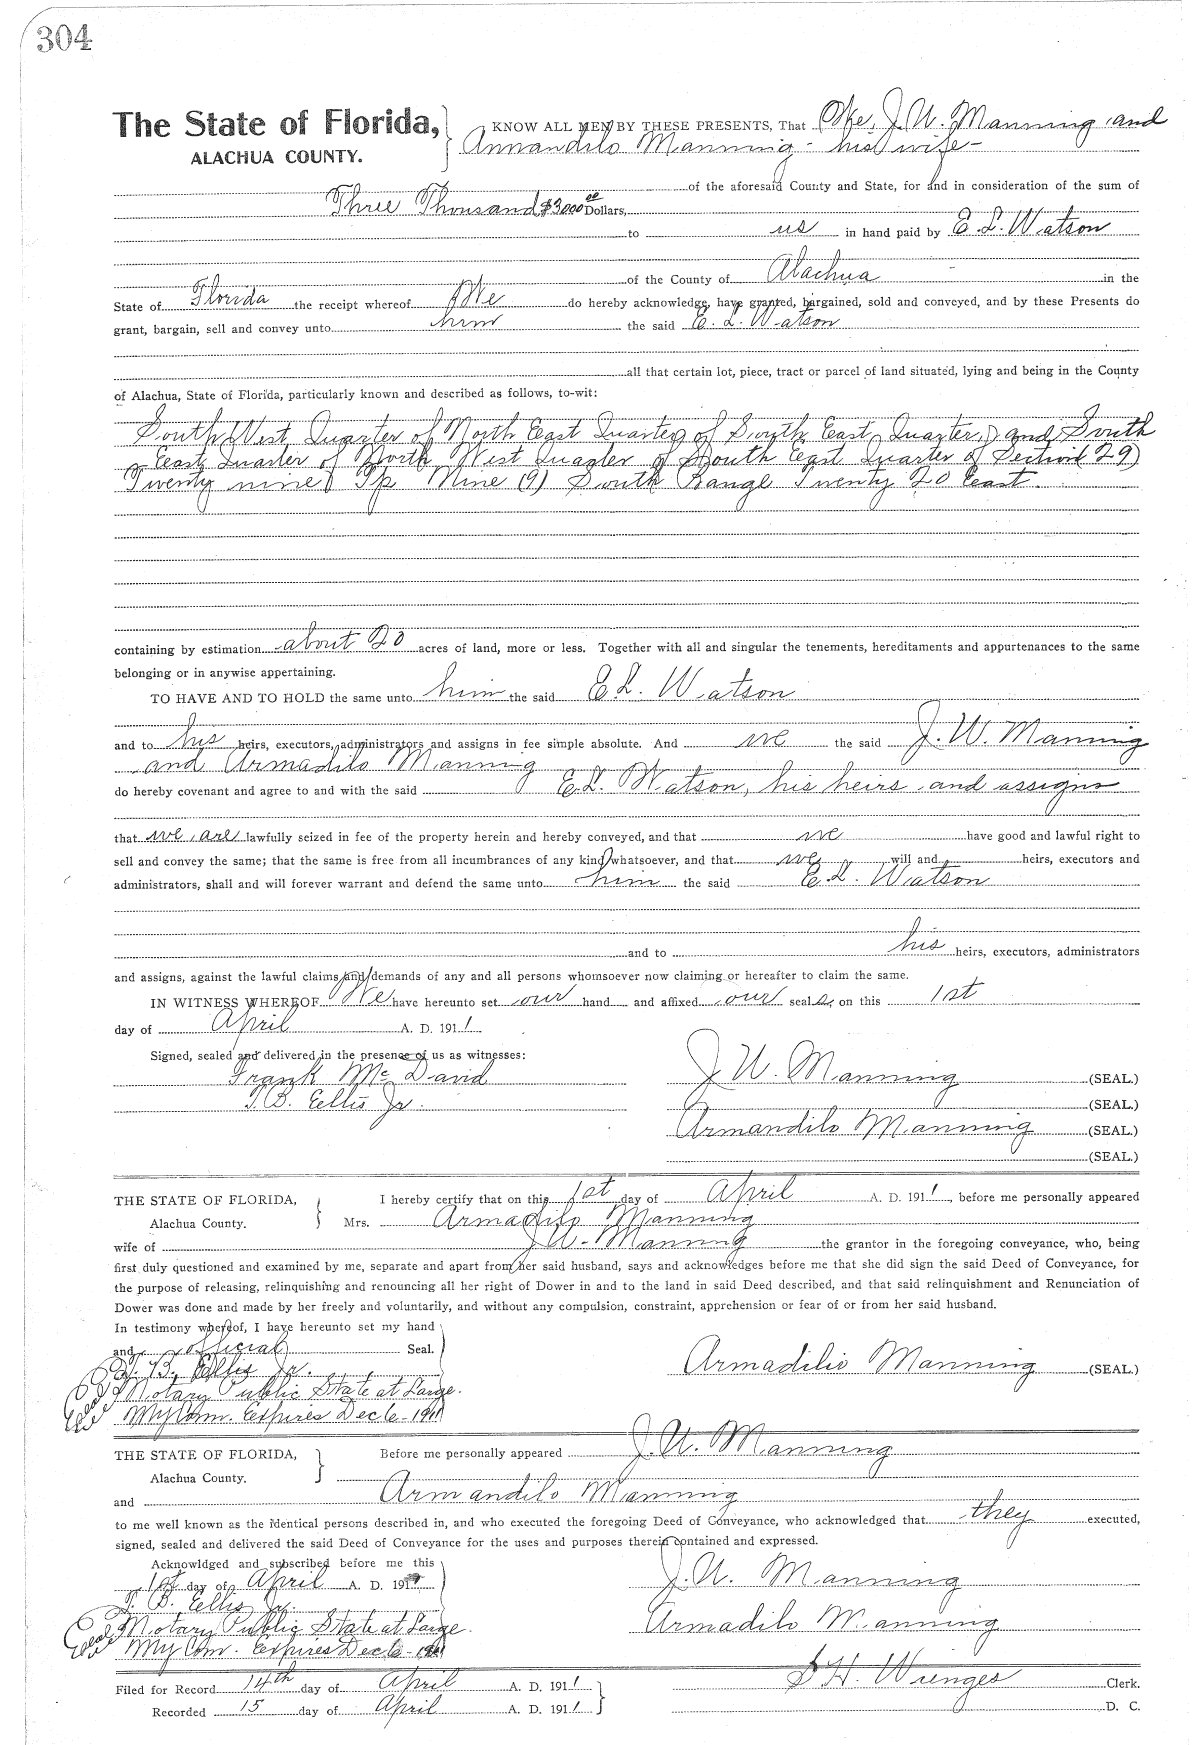 304
The State of Florida,
ALACHUA COUNTY.
KNOW ALL MEN BY THESE PRESENTS, That We, J. W. Manning and
Armandilo Manning - his wife -
of the aforesaid County and State, for and in consideration of the sum of
Three Thousand $3000.00 Dollars,
to us in hand paid by E. L. Watson
of the County of Alachua in the
State of Florida the receipt whereof We do hereby acknowledge, have granted, bargained, sold and conveyed, and by these Presents do
grant, bargain, sell and convey unto him the said E. L. Watson
all that certain lot, piece, tract or parcel of land situated, lying and being in the County
of Alachua, State of Florida, particularly known and described as follows, to-wit:
South West Quarter of North East Quarter of South East Quarter, and South
East Quarter of North West Quarter of South East Quarter of Section (29)
Twenty nine Tp Nine (9) South Range Twenty 20 East.
containing by estimation about 20 acres of land, more or less. Together with all and singular the tenements, hereditaments and appurtenances to the same
belonging or in anywise appertaining.
TO HAVE AND TO HOLD the same unto him the said E. L. Watson
and to his heirs, executors, administrators and assigns in fee simple absolute. And we the said J. W. Manning
and Armadilo Manning
do hereby covenant and agree to and with the said E. L. Watson, his heirs and assigns
that we are lawfully seized in fee of the property herein and hereby conveyed, and that we have good and lawful right to
sell and convey the same; that the same is free from all incumbrances of any kind whatsoever, and that we will and heirs, executors and
administrators, shall and will forever warrant and defend the same unto him the said E. L. Watson
and to his heirs, executors, administrators
and assigns, against the lawful claims and demands of any and all persons whomsoever now claiming or hereafter to claim the same.
IN WITNESS WHEREOF We have hereunto set our hand and affixed our seals, on this 1st
day of April A. D. 1911
Signed, sealed and delivered in the presence of us as witnesses:
Frank McDavid
T. B. Ellis Jr.
J W. Manning (SEAL.)
(SEAL.)
Armandilo Manning (SEAL.)
(SEAL.)
THE STATE OF FLORIDA,
Alachua County.
I hereby certify that on this 1st day of April A. D. 1911, before me personally appeared
Mrs. Armadilo Manning
wife of J. W. Manning the grantor in the foregoing conveyance, who, being
first duly questioned and examined by me, separate and apart from her said husband, says and acknowledges before me that she did sign the said Deed of Conveyance, for
the purpose of releasing, relinquishing and renouncing all her right of Dower in and to the land in said Deed described, and that said relinquishment and Renunciation of
Dower was done and made by her freely and voluntarily, and without any compulsion, constraint, apprehension or fear of or from her said husband.
In testimony whereof, I have hereunto set my hand
and official Seal.
T. B. Ellis Jr.
Notary Public State at Large.
My Com. Expires Dec 6 - 1911
Armadilio Manning (SEAL.)
THE STATE OF FLORIDA,
Alachua County.
Before me personally appeared J. W. Manning
and Armandilo Manning
to me well known as the identical persons described in, and who executed the foregoing Deed of Conveyance, who acknowledged that they executed,
signed, sealed and delivered the said Deed of Conveyance for the uses and purposes therein contained and expressed.
Acknowldged and subscribed before me this
1st day of April A. D. 191
T. B. Ellis Jr.
Notary Public State at Large.
My Com. Expires Dec 6 - 1911
J. W. Manning
Armadilo Manning
Filed for Record 14th day of April A. D. 1911
Recorded 15 day of April A. D. 1911
S H. Wienges Clerk.
D. C.